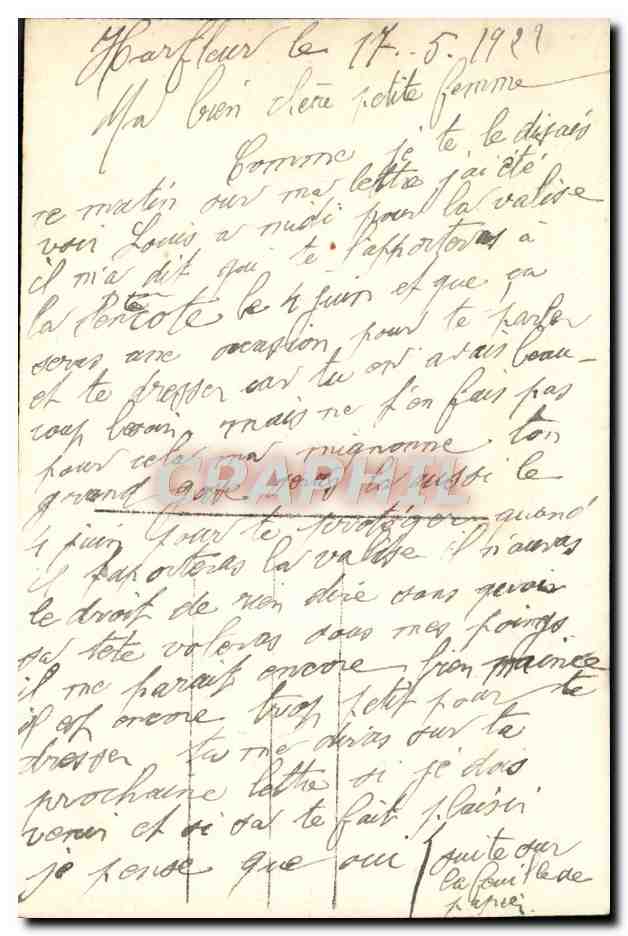 Harfleur le 17. 5. 1922
Ma bien chère petite femme
Comme je te le disais
ce matin sur ma lettre j'ai été
voir Louis a midi pour la valise
il m'a dit qui te l'apporteras à
la Pentecote le 4 juin et que ça
seras une occasion pour te parler
et te dresser car tu en avais beau-
coup besoin, mais ne t'en fais pas
pour cela ma mignonne ton
grand gove seras la aussi le
4 juin pour te protéger quand
il t'aporteras la valise il n'auras
le droit de rien dire sans quoi
sa tête voleras sous mes poings
il me parait encore bien mince
il est encore trop petit pour te
dresser tu me diras sur ta
prochaine lettre si je dois
venir et si sa te fait plaisir
je pense que oui
suite sur
la feuille de
papier.
CPAPHIL